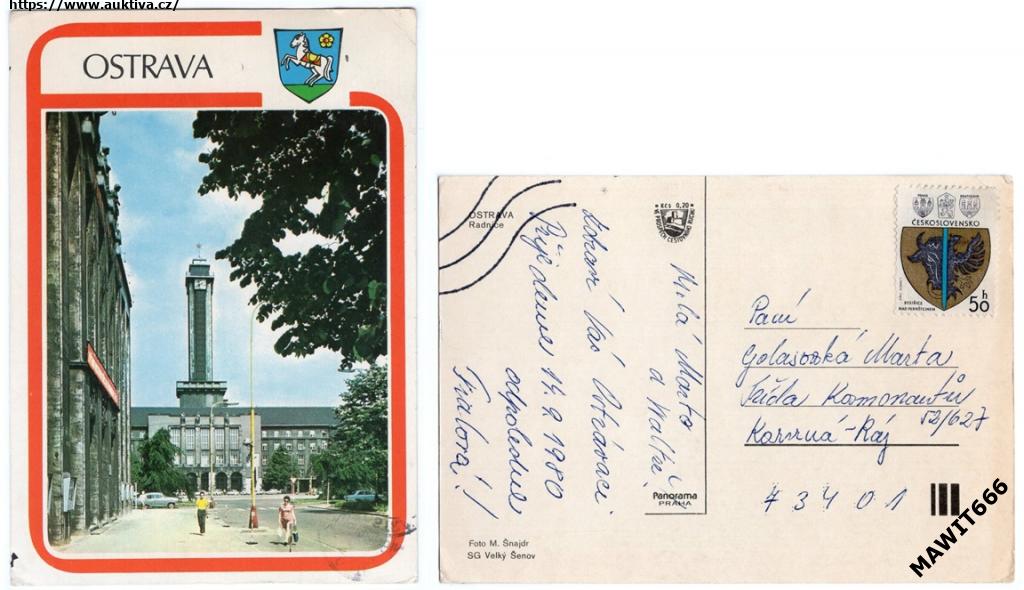 https://www.auktiva.cz/
OSTRAVA
OSTRAVA
Radnice
Kčs 0,20
Milá Marto
a Walti
Lokaní Vás Ostravaci
Přijedeme 14.9 1980
odpoledne
Fialová!
Panorama
PRAHA
Foto M. Šnajdr
SG Velký Šenov
PRAHA
BRATISLAVA
ČESKOSLOVENSKO
BYSTŘICE
NAD PERNŠTEJNEM
50 h
Paní
Golasovská Marta
Třída Kosmonautů
52/627
Karviná-Ráj
73401
MAWIT666